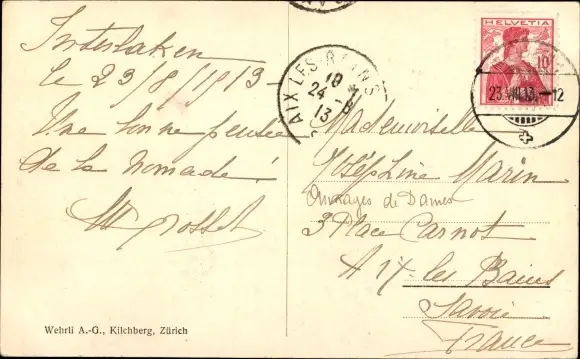 Interlaken
le 23/8/1913-
Une bonne pensée
de la nomade!
Grosset
Wehrli A.-G., Kilchberg, Zürich
AIX-LES-BAINS
19
24-8
13
HELVETIA
10
23.VIII.13.-12
Mademoiselle
Joséphine Marin
Ouvrages de Dames
3 Place Carnot
Aix-les Bains
Savoie
France